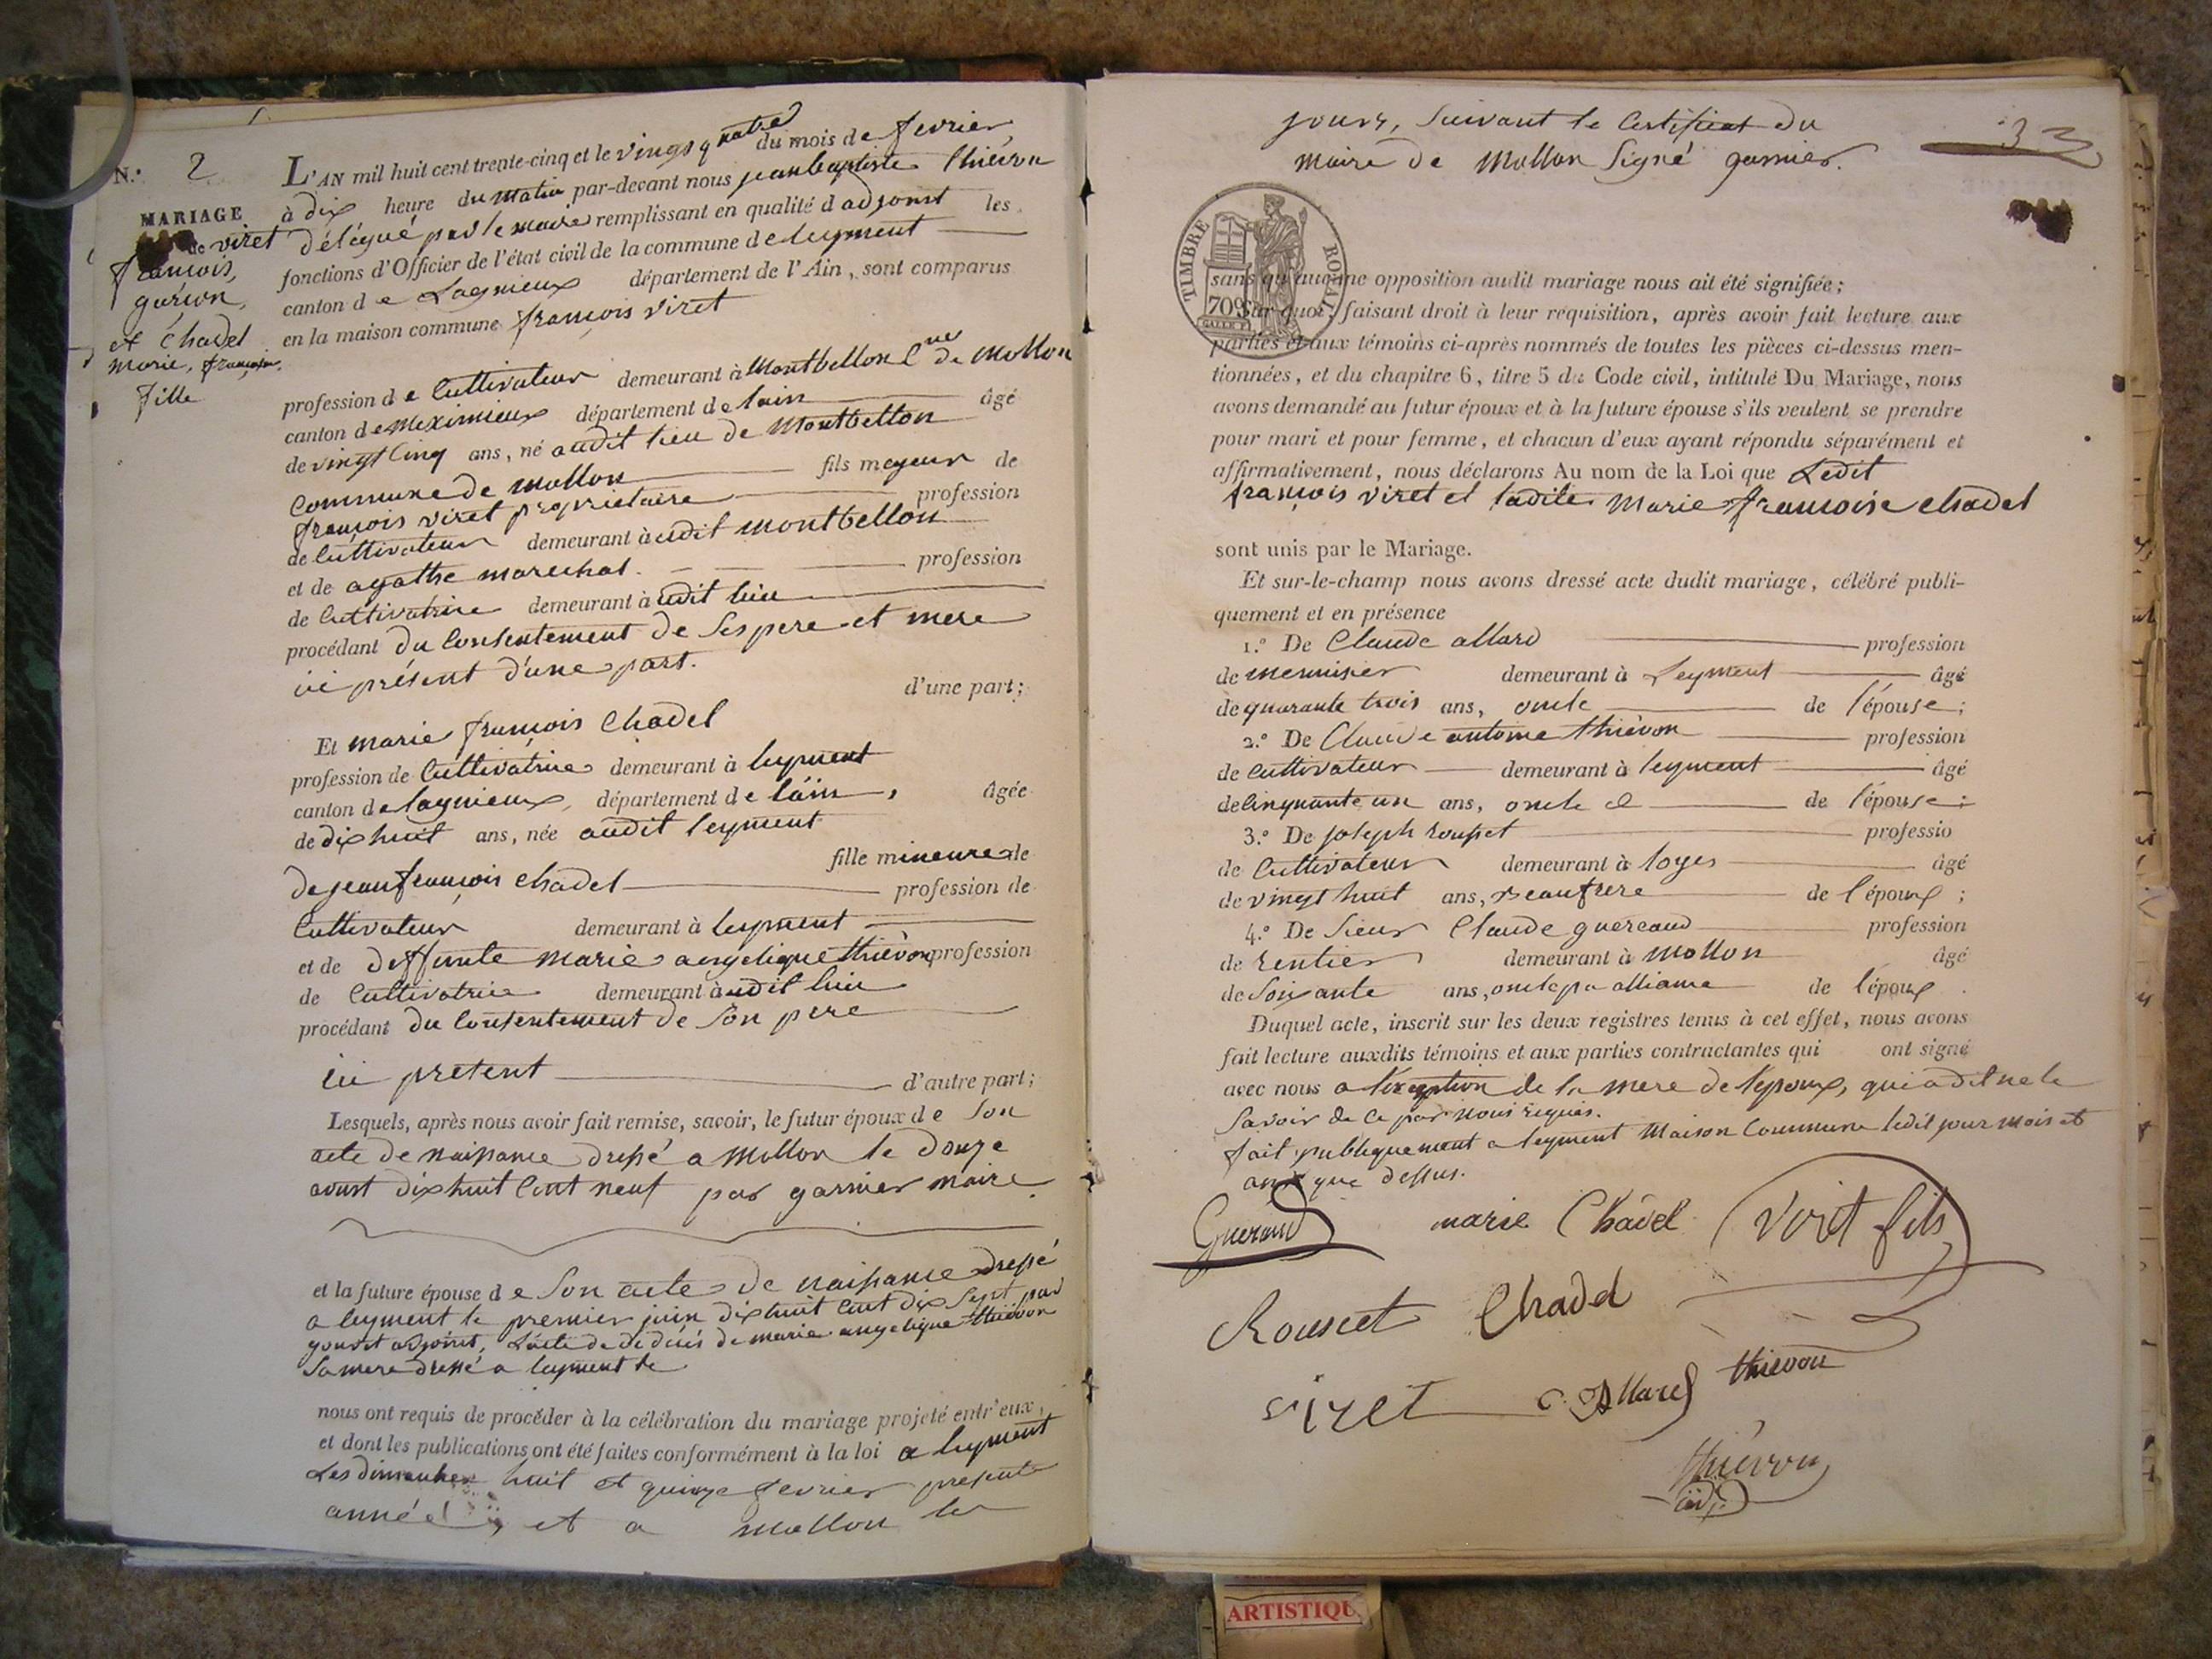 N.° 2
MARIAGE
de viret
françois,
garçon,
et Chadel
marie, françoise,
fille
L'AN mil huit cent trente-cinq et le vingt quatre du mois de fevrier,
à dix heure du matin par-devant nous jean baptiste thiévon
délégué par le maire remplissant en qualité d adjoint les
fonctions d'Officier de l'état civil de la commune de leyment
canton de Lagnieux département de l'Ain, sont comparus
en la maison commune françois viret
profession de Cultivateur demeurant à Montbellon Cne de Mollon
canton de Meximieux département de lain âgé
de vingt cinq ans, né audit lieu de Montbellon
Commune de mollon fils majeur de
françois viret propriétaire profession
de Cultivateur demeurant à udit montbellon
et de agathe marechal. profession
de Cultivatrice demeurant à udit lieu
procédant du Consentement de ses pere et mere
ici présent d'une part.
d'une part;
Et marie françois Chadel
profession de Cultivatrice demeurant à leyment
canton de lagnieux, département de l'ain, âgée
de dix huit ans, née audit leyment
fille mineure de
de jean françois chadel profession de
Cultivateur demeurant à leyment
et de deffunte marie angelique thiévon profession
de Cultivatrice demeurant à udit lieu
procédant du Consentement de son pere
ici present d'autre part;
Lesquels, après nous avoir fait remise, savoir, le futur époux de son
acte de naissance dressé a Mollon le douze
aoust dix huit Cent neuf par garnier maire
et la future épouse de son acte de naissance dressé
a leyment le premier juin dix huit Cent dix sept par
adjoint, L'acte de décés de marie angelique thiévon
sa mere dressé a leyment le
nous ont requis de procéder à la célébration du mariage projeté entr'eux,
et dont les publications ont été faites conformément à la loi a leyment
Les dimanches huit et quinze fevrier presente
année, et a mollon les
jours, suivant le Certificat du
maire de Mollon signé garnier.
33
TIMBRE ROYAL
70 C
sans qu'aucune opposition audit mariage nous ait été signifiée;
Sur quoi, faisant droit à leur réquisition, après avoir fait lecture aux
parties et aux témoins ci-après nommés de toutes les pièces ci-dessus men-
tionnées, et du chapitre 6, titre 5 du Code civil, intitulé Du Mariage, nous
avons demandé au futur époux et à la future épouse s'ils veulent se prendre
pour mari et pour femme, et chacun d'eux ayant répondu séparément et
affirmativement, nous déclarons Au nom de la Loi que Ledit
françois viret et ladite Marie françoise chadel
sont unis par le Mariage.
Et sur-le-champ nous avons dressé acte dudit mariage, célébré publi-
quement et en présence
1.° De Claude allard profession
de menuisier demeurant à Leyment âgé
de quarante trois ans, oncle de l'épouse;
2.° De Claude antoine thiévon profession
de Cultivateur demeurant à leyment âgé
de Cinquante un ans, oncle de l'épouse;
3.° De joseph rousset professio
de Cultivateur demeurant à loyes âgé
de vingt huit ans, Beaufrere de l'époux;
4.° De sieur Claude gueraud profession
de rentier demeurant à mollon âgé
de soixante ans, oncle par alliance de l'époux.
Duquel acte, inscrit sur les deux registres tenus à cet effet, nous avons
fait lecture auxdits témoins et aux parties contractantes qui ont signé
avec nous a l'exception de la mere de l'epoux, qui a dit ne le
savoir de ce par nous requis.
fait publiquement a leyment Maison Commune ledit jour mois et
an que dessus.
Gueraud marie Chadel Virét fils
Rouscet Chadel
viret C. Allard thievon
thiévon
adj.
ARTISTIQU